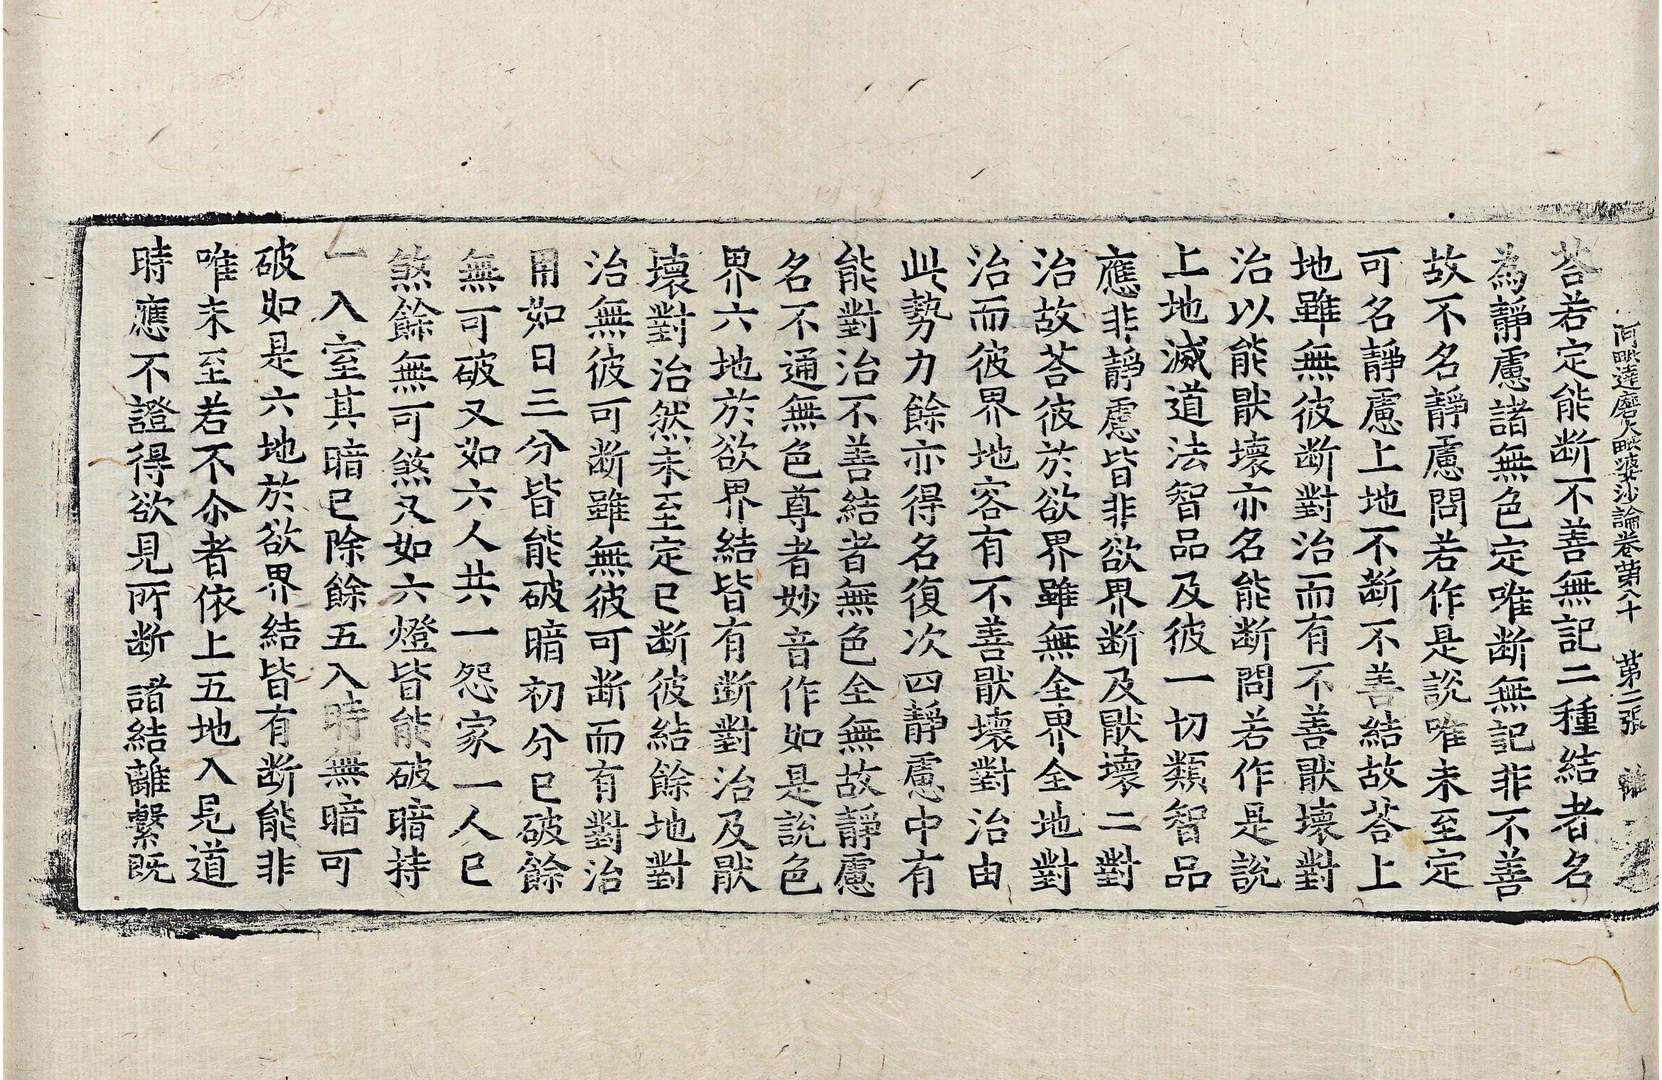 阿毗達磨大毗婆沙論卷第八十 第二張 離
荅若定能斷不善無記二種結者名
為靜慮諸無色定唯斷無記非不善
故不名靜慮問若作是說唯未至定
可名靜慮上地不斷不善結故荅上
地雖無彼斷對治而有不善猒壞對
治以能猒壞亦名能斷問若作是說
上地滅道法智品及彼一切類智品
應非靜慮皆非欲界斷及猒壞二對
治故荅彼於欲界雖無全界全地對
治而彼界地容有不善猒壞對治由
此勢力餘亦得名復次四靜慮中有
能對治不善結者無色全無故靜慮
名不通無色尊者妙音作如是說色
界六地於欲界結皆有斷對治及猒
壞對治然未至定已斷彼結餘地對
治無彼可斷雖無彼可斷而有對治
用如日三分皆能破暗初分已破餘
無可破又如六人共一怨家一人已
煞餘無可煞又如六燈皆能破暗持
一入室其暗已除餘五入時無暗可
破如是六地於欲界結皆有斷能非
唯未至若不尒者依上五地入見道
時應不證得欲見所斷諸結離繫既